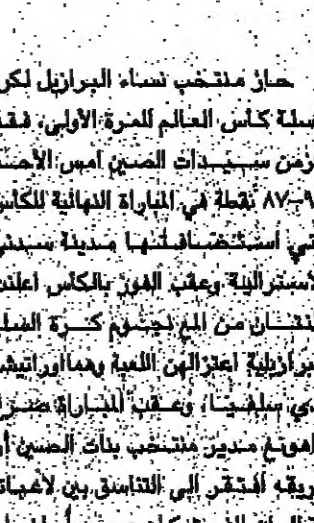 حاز منتخب نساء البرازيل لكر
سلة كأس العالم للمرة الأولى، فقد
زمن سيدات الصين امس الأحد
٩–٨٧ نقطة في المباراة النهائية للكأس
تي استضافتها مدينة سيدني
لاسترالية وعقب الفوز بالكأس اعلنت
نتان من المع نجوم كرة السلة
برازيلية اعتزالهن اللعبة وهما اورانيش
دي سلفيا، وعقب المباراة صرح
اهونغ مدير منتخب بنات الصين أن
ريقه افتقر الى التناسق بين لاعباته